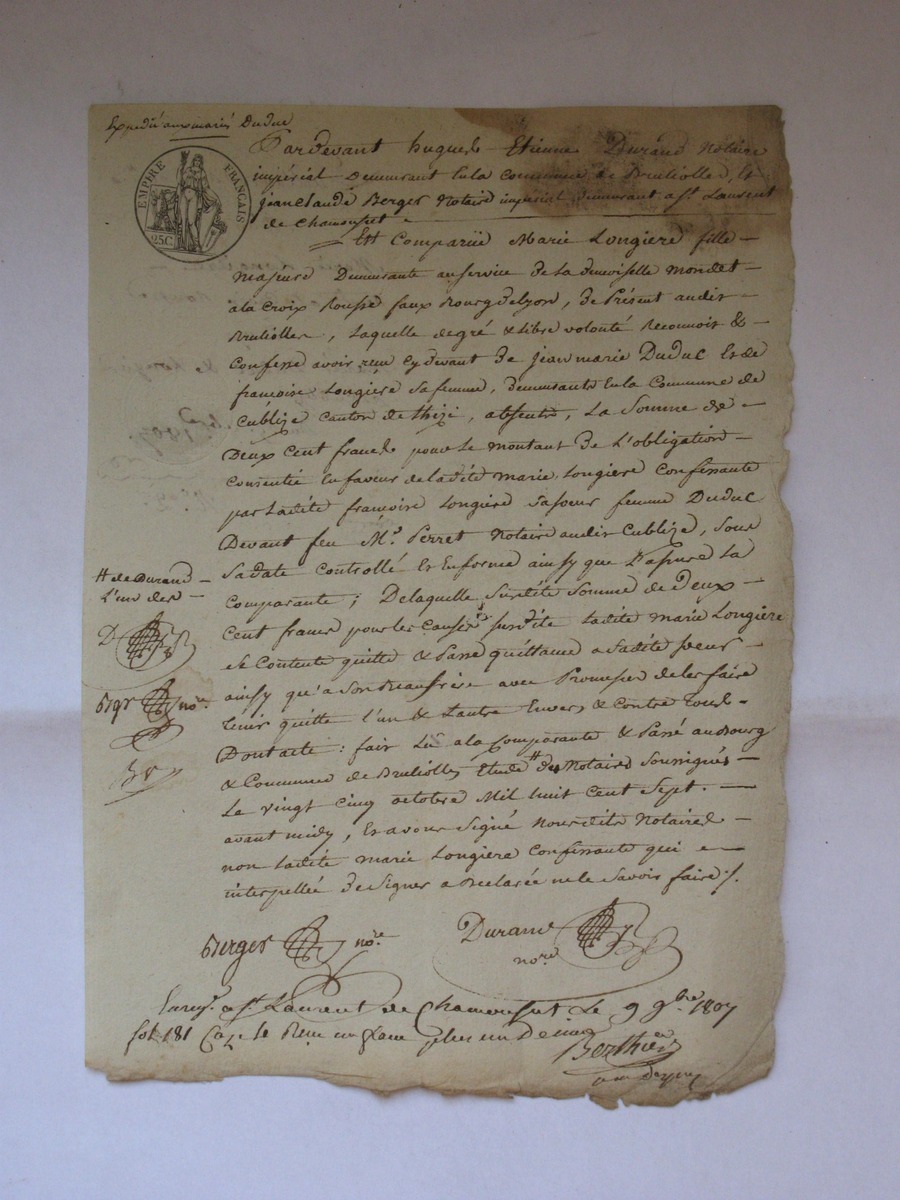 Expedié aux mariés Duduc
EMPIRE FRANÇAIS
25C
Pardevant hugues Etienne Durand Notaire
impérial Demeurant En la commune de Brullioller, Et
jean claude Berger Notaire impérial demeurant a St. Laurent
de Chamousset
Est Comparüe Marie Longiere fille
majeure Demeurante au service de la demoiselle mondet
a la Croix Rousse faux Bourg de Lyon, de Présent audit
Brulioller, Laquelle de gré & libre volonté Reconnoit &
Confesse avoir reçu cy devant De jean marie Duduc Et de
françoise Longiere sa femme, demeurants En la Commune de
Cublize canton de thizi, absents, La Somme de
Deux Cent francs pour le montant De L'obligation
Consentie En faveur de ladite marie Longiere Confessante
par Ladite françoise Longiere sa soeur femme Duduc
Devant feu Me. Perret Notaire audit Cublize, Sous
Sa date Controllé Et En forme ainsy que L'assure La
Comparante ; De laquelle Susdite Somme de Deux
Cent francs pour les Causes susdite ladite marie Longiere
se Contente quitte & Passe quittance a Sadite soeur
ainsy qu'a Son Beaufrère avec Promesse de les faire
tenir quitte l'un & L'autre Envers & Contre tous
Dont acte : fait Lu a la Comparante & Passé au Bourg
& Commune de Brulioller Etude # des Notaires Soussignés
Le vingt cinq octobre Mil huit Cent Sept.
avant midy, Et avons Signé Nousdits Notaires
non ladite marie Longiere Confessante qui
interpellée de Signer a Déclarée ne le Savoir faire ./.
# de Durand
L'un des
D
Bgr nore.
Berger nore.
Durand
nore
Enreg. a St. Laurent de Chamousset Le 9 9bre 1807
fol. 181 Ca. 1e Reçu un franc plus un Décime
Berthier